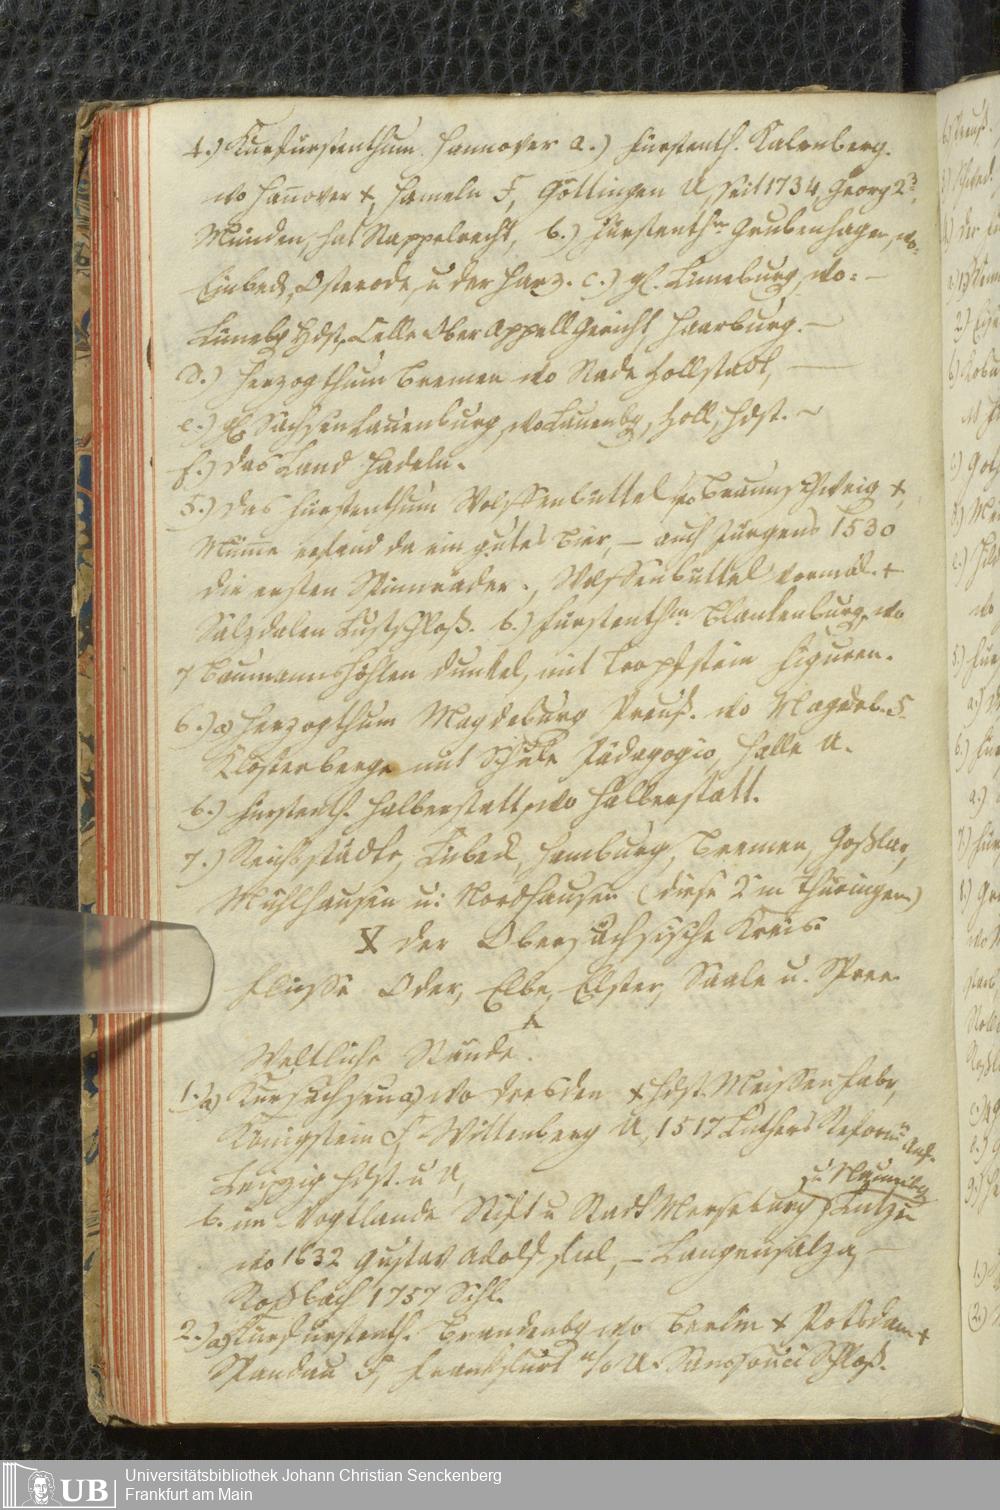 4.) Kurfürstenthum Hannover a.) Fürstenth. Kalenberg.
wo Hanover +, Hameln F, Göttingen U, seit 1734, Georg 2
Münden, hat Stappelrecht, b.) Fürstenthm Grubenhagen, wo
Einbeck, Osterode, u der Harz. c.) Lüneburg, wo: –
Lünebg Hdst, Celle Ober Appell Gericht, Haarburg. –
d.) Herzogthum Bremen wo Stade Zollstadt, –
e.) Sachsen Lauenburg, wo Lauenbg, Zoll, Hdst. ~
f.) das Land Hadeln.
5.) das Fürstenthum Wolffenbüttel wo Braunschweig +,
Mum̄e erfand da ein gutes Bier, – auch Jürgens 1530
die ersten Spinnräder., Wolffenbüttel vormal. +
Salzdalen Lustschloß. b.) Fürstenthm Blankenburg, wo
7 Baumannshöhlen dunkel, mit Tropfstein Figuren.
6.) a) Herzogthum Magdeburg Preuß. wo Magdeb. F.
Klosterberge mit Schule Pädagogio, Halle U.
b.) Fürstenth. Halberstatt, wo Halberstatt.
7.) Reichsstädte, Lübeck, Hamburg, Bremen, Goßlar,
Mühlhausen u: Nordhausen (diese 2 in Thüringen)
X der Obersächsische Kreis:
Flüsse Oder, Elbe, Elster, Saale u. Spree.
A
Weltliche Stände.
1.) a) Kursachsen a) wo Dresden + Hdst. Meissen Fabr,
Königstein F, Wittenberg U, 1517 Luthers Reformn Anf.
Leipzig Hdst. u U,
b. im Vogtlande Stift u Stadt Merseburg u Naumbg, Lützen
wo 1632 Gustav Adolf fiel, – Langensalza, –
Roßbach 1757 Schl.
2.) a) Kurfürstenth. Brandenbg wo Berlin + Potsdam +
Spandau F, Frankfurt a/o U. Sansouci Schloß.
UB
Universitätsbibliothek Johann Christian Senckenberg
Frankfurt am Main